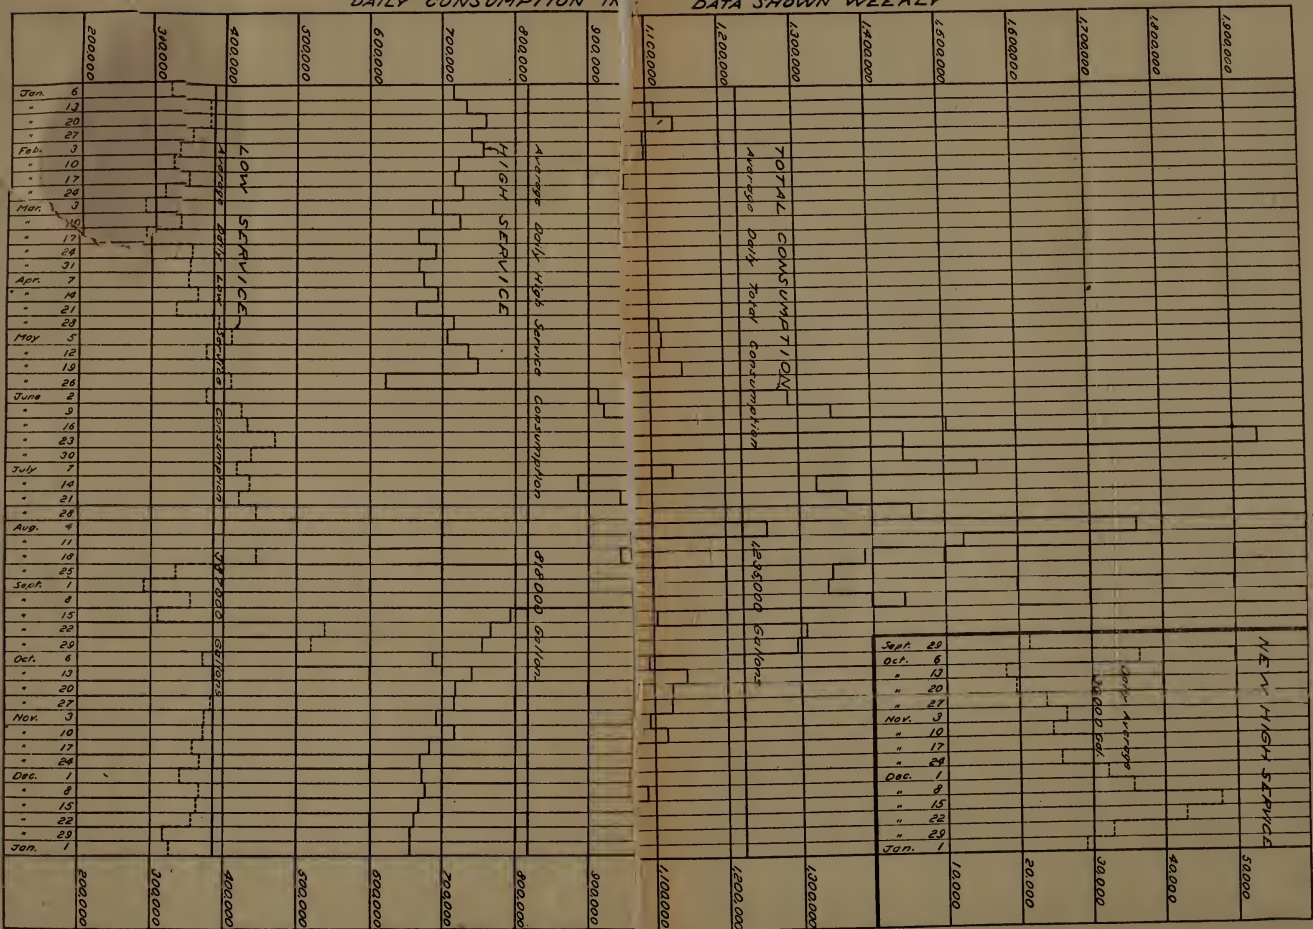 DAILY CONSUMPTION IN
DATA SHOWN WEEKLY
200,000
300,000
400,000
500,000
600,000
700,000
800,000
900,000
1,100,000
1,200,000
1,300,000
1,400,000
1,500,000
1,600,000
1,700,000
1,800,000
1,900,000
Jan. 6
" 13
" 20
" 27
Feb. 3
" 10
" 17
" 24
Mar. 3
" 10
" 17
" 24
" 31
Apr. 7
" 14
" 21
" 28
May 5
" 12
" 19
" 26
June 2
" 9
" 16
" 23
" 30
July 7
" 14
" 21
" 28
Aug. 4
" 11
" 18
" 25
Sept. 1
" 8
" 15
" 22
" 29
Oct. 6
" 13
" 20
" 27
Nov. 3
" 10
" 17
" 24
Dec. 1
" 8
" 15
" 22
" 29
Jan. 1
LOW SERVICE
Average Daily Low Service Consumption Gallons
HIGH SERVICE
Average Daily High Service Consumption 818000 Gallon.
TOTAL CONSUMPTION
Average Daily Total Consumption Gallons
NEW HIGH SERVICE
Daily Average
Gal.
Sept. 29
Oct. 6
" 13
" 20
" 27
Nov. 3
" 10
" 17
" 24
Dec. 1
" 8
" 15
" 22
" 29
Jan. 1
200,000
300,000
400,000
500,000
600,000
700,000
800,000
900,000
1,100,000
1,200,000
1,300,000
10,000
20,000
30,000
40,000
50,000